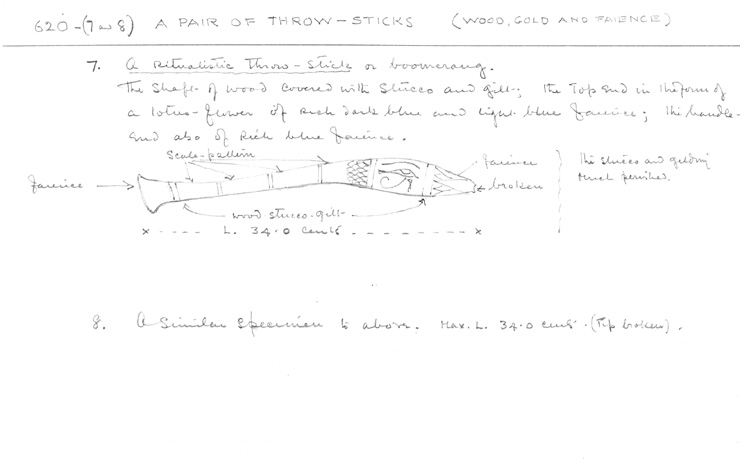 620-(7 and 8) A PAIR OF THROW-STICKS (WOOD, GOLD AND FAIENCE)
7. A Ritualistic Throw-Stick or boomerang.
The Shaft of wood covered with Stucco and gilt; the Top End in the form of
a lotus-flower of rich dark blue and light blue faience; the handle-
end also of Rich blue faience.
Scale-pattern
faience
faience
broken
The stucco and gilding
much perished.
wood stucco-gilt
x ---- L. 34.0 cents -------- x
8. A similar specimen to above. Max. L. 34.0 cents. (Tip broken).